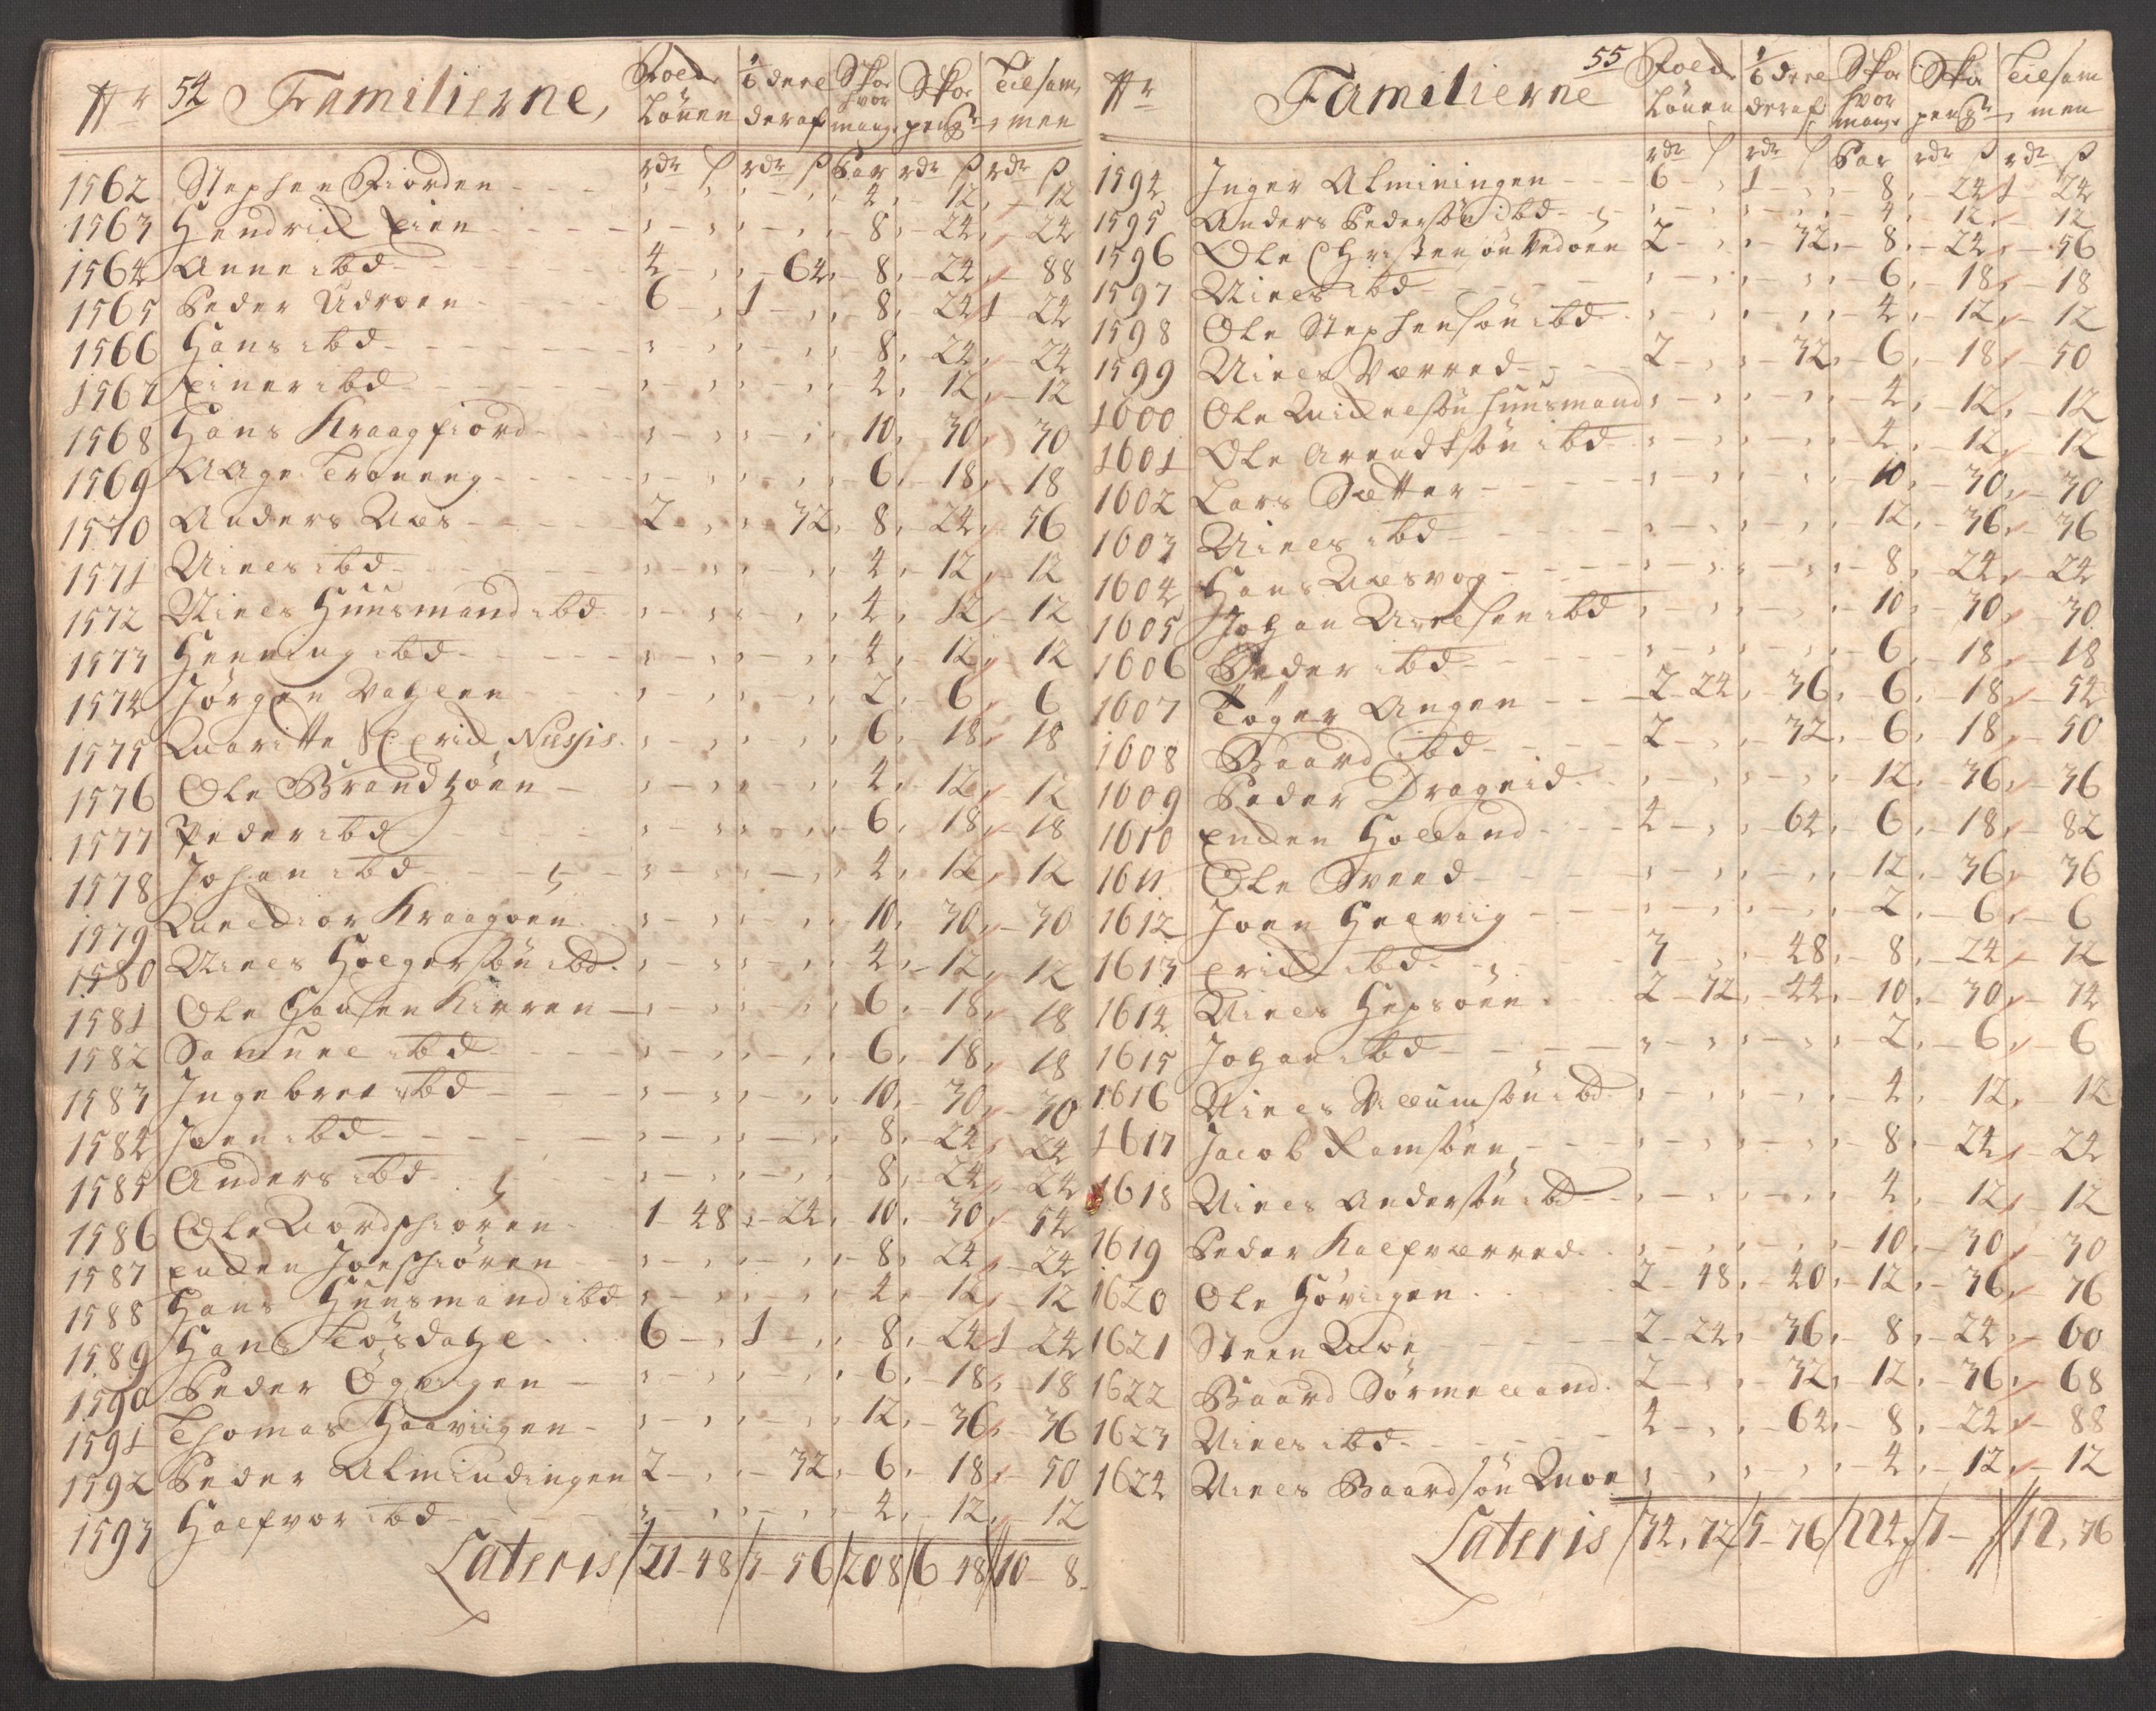 Nr 54 Familierne, Folds Lönen 1/6 dere deraf Skoe hvor mange Skoe peng. Tilsam men
rdr ß rdr ß Par rdr ß rdr ß
1562 Stephen Fiorden - - - 4 - 12 - 12
1563 Hendrich Eien - - - 8 - 24 - 24
1564 Anne ibd - - - 4 - - 64 - 8 - 24 - 88
1565 Peder Udroen - - - 6 - 1 - 8 - 24 1 24
1566 Hans ibd - - - 8 - 24 - 24
1567 Einer ibd - - - 4 - 12 - 12
1568 Hans Kraagfiord - - - 10 - 30 - 30
1569 Aage Troneng - - - 6 - 18 - 18
1570 Anders Næs - - - 2 - - 32 - 8 - 24 - 56
1571 Niels ibd - - - 4 - 12 - 12
1572 Niels Huusmand ibd - 4 - 12 - 12
1573 Henning ibd - - - 4 - 12 - 12
1574 Jörgen Valeen - - - 2 - 6 - 6
1575 Maritte Sl Erich Nussis - 6 - 18 - 18
1576 Ole Brandtzöen - 4 - 12 - 12
1577 Peder ibd - - - 6 - 18 - 18
1578 Johan ibd - - - 4 - 12 - 12
1579 Melchior Kraagöen - 10 - 30 - 30
1580 Niels Holgersön ibd - 4 - 12 - 12
1581 Ole Hansen Kirren - 6 - 18 - 18
1582 Samuel ibd - - - 6 - 18 - 18
1583 Ingebret ibd - - - 10 - 30 - 30
1584 Joen ibd - - - 8 - 24 - 24
1585 Anders ibd - - - 8 - 24 - 24
1586 Ole Nordfiören - 1 - 48 - 24 - 10 - 30 - 54
1587 Enden - 8 - 24 - 24
1588 Hans Huusmand ibd - 4 - 12 - 12
1589 Hans Löjsdahl - 6 - 1 - 8 - 24 1 24
1590 Peder Ögviigen - 6 - 18 - 18
1591 Thomas Haaviigen - 12 - 36 - 36
1592 Peder Almindingen 2 - - 32 - 6 - 18 - 50
1593 Halfvor ibd - - - 4 - 12 - 12
Lateris 21 - 48 3 - 56 208 6 - 48 10 - 8
Nr Familierne 55 Folds Lönen 1/6 dere deraf Skoe hvor mange Skoe peng. Tilsam men
rdr ß rdr ß Par rdr ß rdr ß
1594 Inger Alminingen - 6 - 1 - 8 - 24 1 24
1595 Anders Pedersön ibd - 4 - 12 - 12
1596 Ole Christensön Vedöen 2 - - 32 - 8 - 24 - 56
1597 Niels ibd - - - 6 - 18 - 18
1598 Ole Stephensön ibd - 4 - 12 - 12
1599 Niels Værred - 2 - - 32 - 6 - 18 - 50
1600 Ole Michelsön huusmand - 4 - 12 - 12
1601 Ole Arendtsön ibd - 4 - 12 - 12
1602 Lars Sætter - - - 10 - 30 - 30
1603 Niels ibd - - - 12 - 36 - 36
1604 Hans Næsvog - - - 8 - 24 - 24
1605 Johan Nielsen ibd - 10 - 30 - 30
1606 Peder ibd - - - 6 - 18 - 18
1607 Töger Angen - - 2 - 24 - 36 - 6 - 18 - 54
1608 Baard ibd - - - 2 - - 32 - 6 - 18 - 50
1609 Peder Drageid - 12 - 36 - 36
1610 Enden Holand - - 4 - - 64 - 6 - 18 - 82
1611 Ole Svend - - - 12 - 36 - 36
1612 Joen Helviig - - - 2 - 6 - 6
1613 Erich ibd - - - 3 - - 48 - 8 - 24 - 72
1614 Niels Hepsöen - 2 - 72 - 44 - 10 - 30 - 74
1615 Johan ibd - - - 2 - 6 - 6
1616 Niels Villumsön ibd - 4 - 12 - 12
1617 Jacob Ramsöen - - - 8 - 24 - 24
1618 Niels Andersön ibd - 4 - 12 - 12
1619 Peder Kalfværred - 10 - 30 - 30
1620 Ole Höviigen - 2 - 48 - 40 - 12 - 36 - 76
1621 Steen Moe - - 2 - 24 - 36 - 8 - 24 - 60
1622 Baard Sörmeland - 2 - - 32 - 12 - 36 - 68
1623 Niels ibd - - - 4 - - 64 - 8 - 24 - 88
1624 Niels Baardsön Moe - 4 - 12 - 12
Lateris 34, 72 5 - 76 224 7 - 12, 76